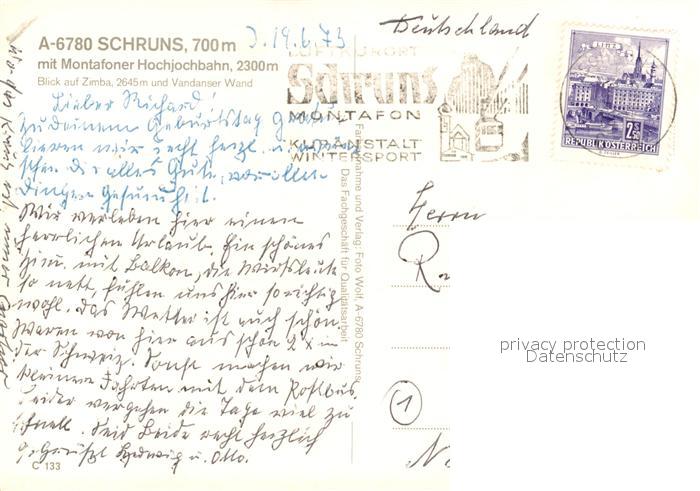 A-6780 SCHRUNS, 700 m
mit Montafoner Hochjochbahn, 2300 m
Blick auf Zimba, 2645 m und Vandanser Wand
19.6.73
Lieber Richard!
Zu deinem Geburtstag gratu-
lieren wir recht herzl. u. wün-
schen dir alles Gute, vor allen
dingen Gesundheit.
Wir verleben hier einen
herrlichen Urlaub. Ein schönes
Zim. mit Balkon, die Wirtsleute
so nett, fühlen uns hier so richtig
wohl. Das Wetter ist auch schön.
Waren von hier aus schon 2 x in
der Schweiz. Sonst machen wir
kleinere Fahrten mit dem Postbus.
Leider vergehen die Tage viel zu
schnell. Seid Beide recht herzlich
gegrüßt Hedwig u. Otto.
C 133
Foto Wolf, A-6780 Schruns
Das Fachgeschäft für Qualitätsarbeit
LUFTKURORT
Schruns
MONTAFON
KURANSTALT
WINTERSPORT
Deutschland
LINZ
2.50
REPUBLIK ÖSTERREICH
Herrn
R
1
N
privacy protection
Datenschutz